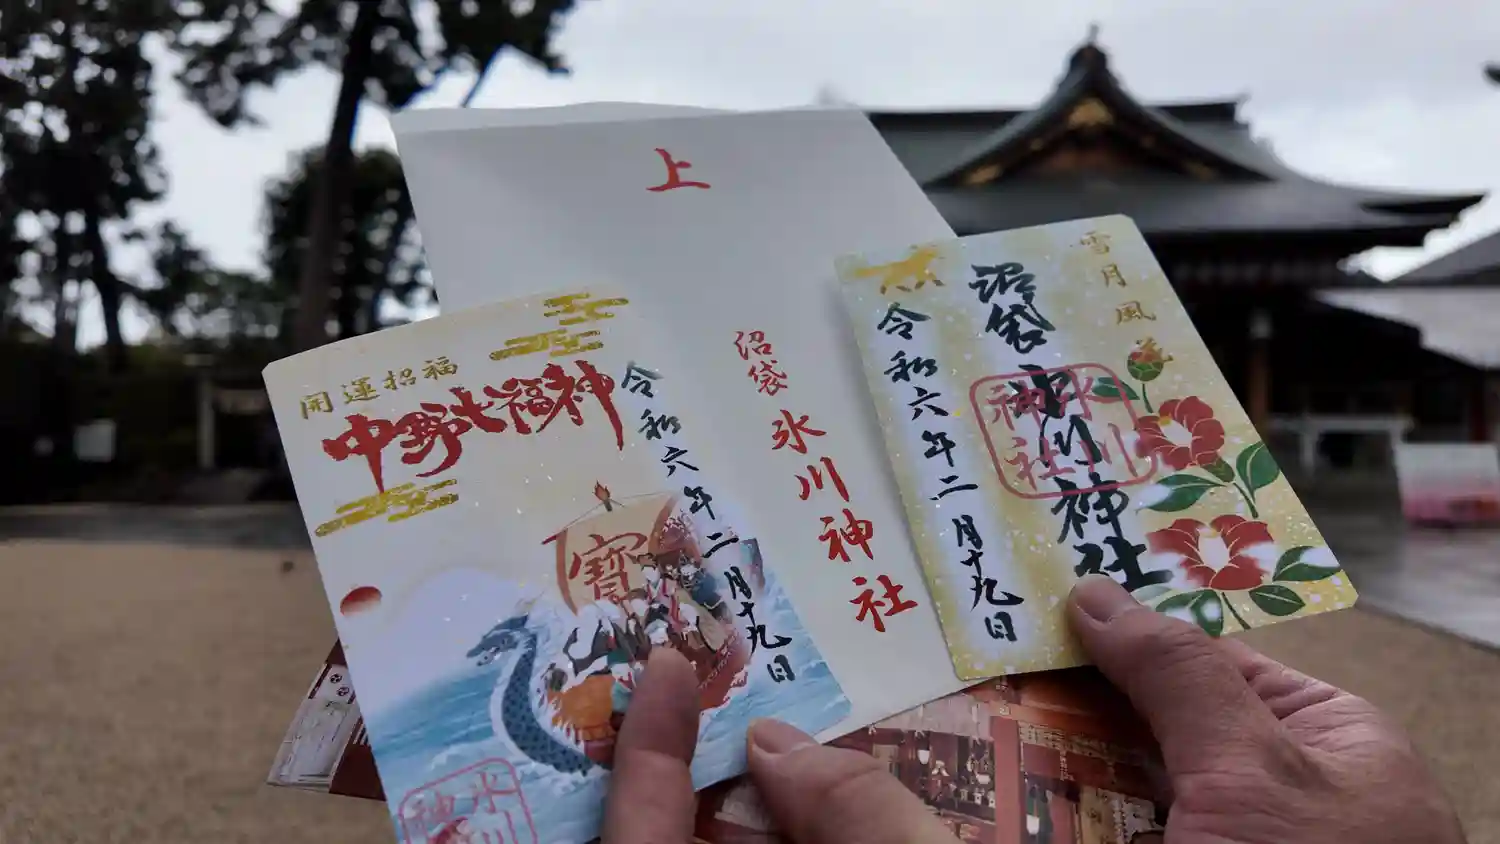 上
沼袋
氷川神社
開運招福
中野七福神
令和六年二月十九日
寳
氷川
神社
雪月風花
沼袋
氷川神社
令和六年二月十九日
氷川
神社